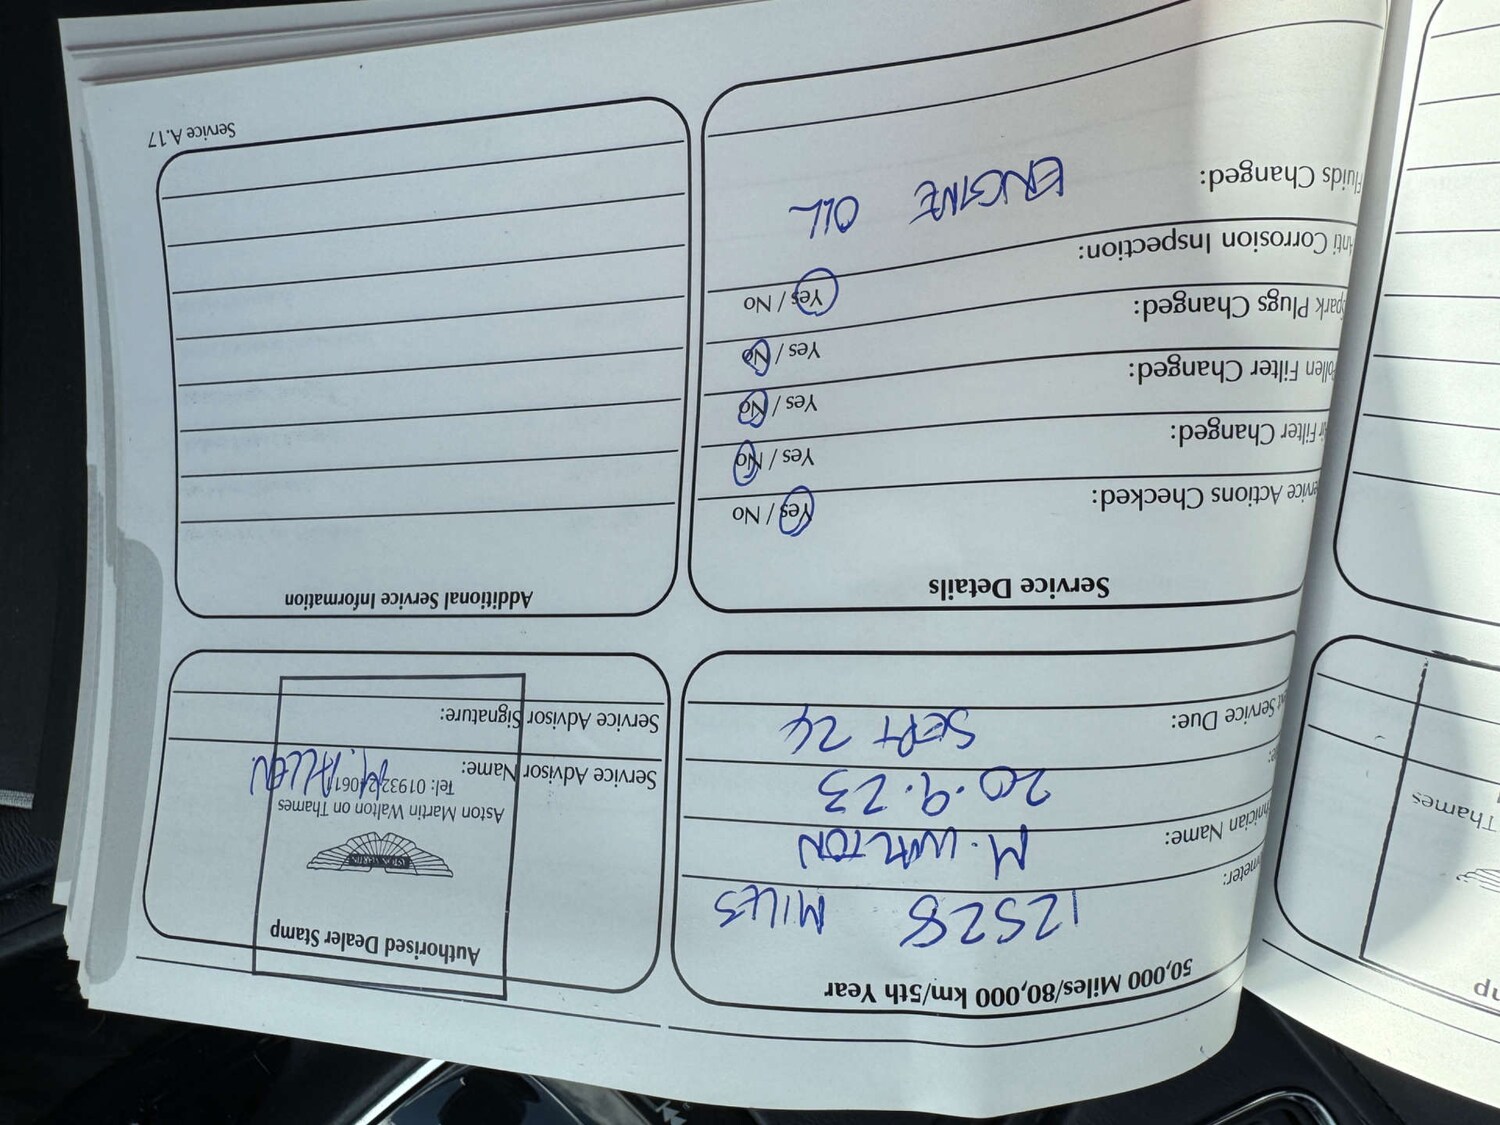 50,000 Miles/80,000 km/5th Year
ometer: 12528 MILES
hnician Name: M. WALTON
e: 20.9.23
xt Service Due: SEPT 24
Authorised Dealer Stamp
ASTON MARTIN
Aston Martin Walton on Thames
Tel: 01932240611
Service Advisor Name: M. ALLEN
Service Advisor Signature:
Service Details
ervice Actions Checked: Yes / No
ir Filter Changed: Yes / No
ollen Filter Changed: Yes / No
park Plugs Changed: Yes / No
nti Corrosion Inspection: Yes / No
Fluids Changed: ENGINE OIL
Additional Service Information
Service A.17
mp
Thames